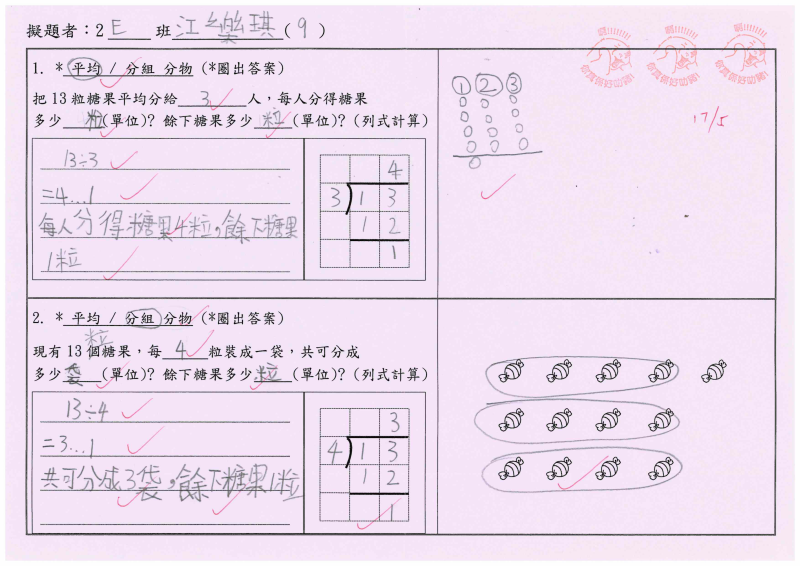 擬題者：2 E 班 江樂琪 ( 9 )
1. * 平均 / 分組 分物 (*圈出答案)
把 13 粒糖果平均分給 3 人，每人分得糖果
多少 粒 (單位)? 餘下糖果多少 粒 (單位)? (列式計算)
13÷3
=4...1
每人分得糖果4粒，餘下糖果
1粒
4
3 1 3
1 2
1
① ② ③
17/5
2. * 平均 / 分組 分物 (*圈出答案)
粒
現有 13 個糖果，每 4 粒裝成一袋，共可分成
多少 袋 (單位)? 餘下糖果多少 粒 (單位)? (列式計算)
13÷4
=3...1
共可分成3袋，餘下糖果1粒
3
4 1 3
1 2
1